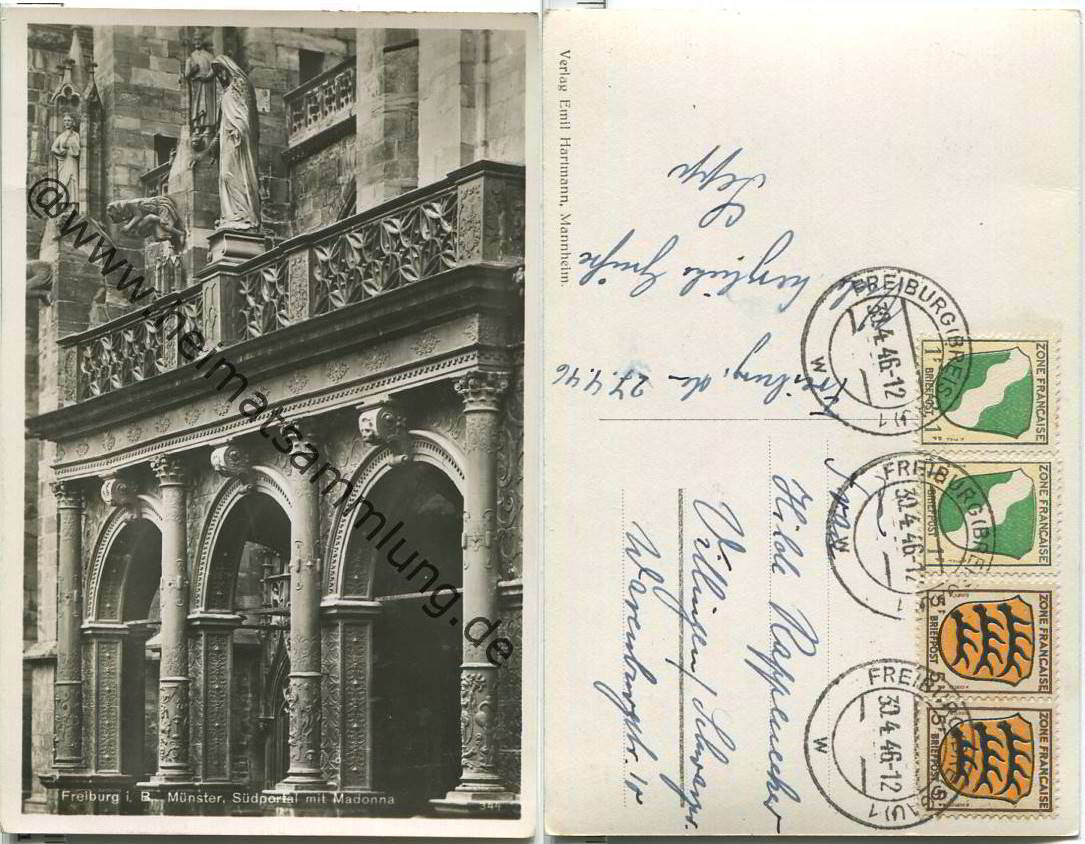 @www.heimatsammlung.de
Freiburg i. B., Münster, Südportal mit Madonna
344
Verlag Emil Hartmann, Mannheim.
Freiburg, den 27.4.46
herzliche Grüße
Sepp
Hilde Rappenecker
Villingen/Schwarzw.
Warenburgstr. 10
FREIBURG (BREISGAU) 1
30.4.46-12
W
FREIBURG (BREISGAU) 1
30.4.46-12
W
FREIBURG (BREISGAU) 1
30.4.46-12
W
ZONE FRANÇAISE
1 BRIEFPOST 1
ZONE FRANÇAISE
BRIEFPOST 1
ZONE FRANÇAISE
5 BRIEFPOST 5
ZONE FRANÇAISE
5 BRIEFPOST 5